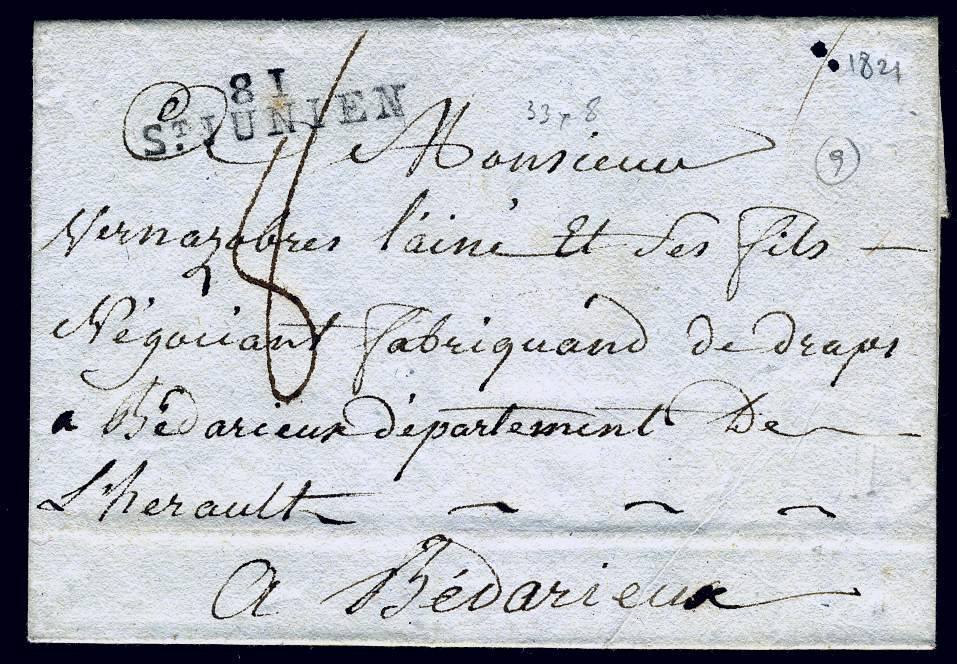 81
ST JUNIEN
1821
33 x 8
9
8
A Monsieur
Vernazobres l'ainé Et Ses fils
Négociant fabriquand de draps
a Bédarieux département De
L'herault
a Bédarieux